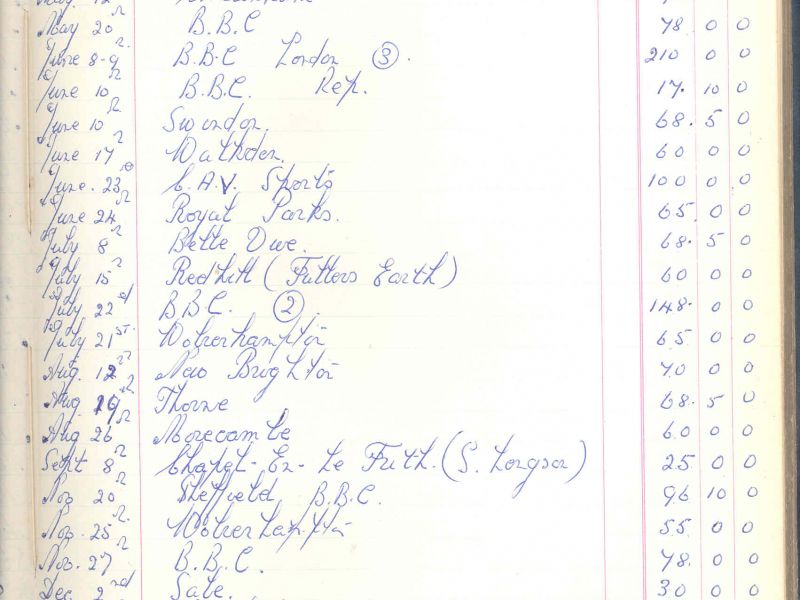 May 20th B.B.C 78 0 0
June 8-9th B.B.C London ③. 210 0 0
June 10th B.B.C. Rep. 17. 10 0
June 10th Swindon. 68. 5 0
June 17th 60 0 0
June. 23rd C.A.V. Sports 100 0 0
June 24th Royal Parks. 65. 0 0
July 8th Belle Vue. 68. 5 0
July 15th Redhill (Fullers Earth) 60 0 0
July 22nd B.B.C. ② 148. 0 0
July 21st. Wolverhampton 65 0 0
Aug. 12th New Brighton 70 0 0
Aug. 19th Thorne 68. 5 0
Aug 26th Morecambe 60 0 0
Sept 8th Chapel-En-Le Frith. (S. Longson) 25 0 0
Nov. 20th Sheffield B.B.C. 96 10 0
Nov. 25th Wolverhampton 55 0 0
Nov. 27th B.B.C. 78 0 0
Dec. 2nd Sale. 30 0 0